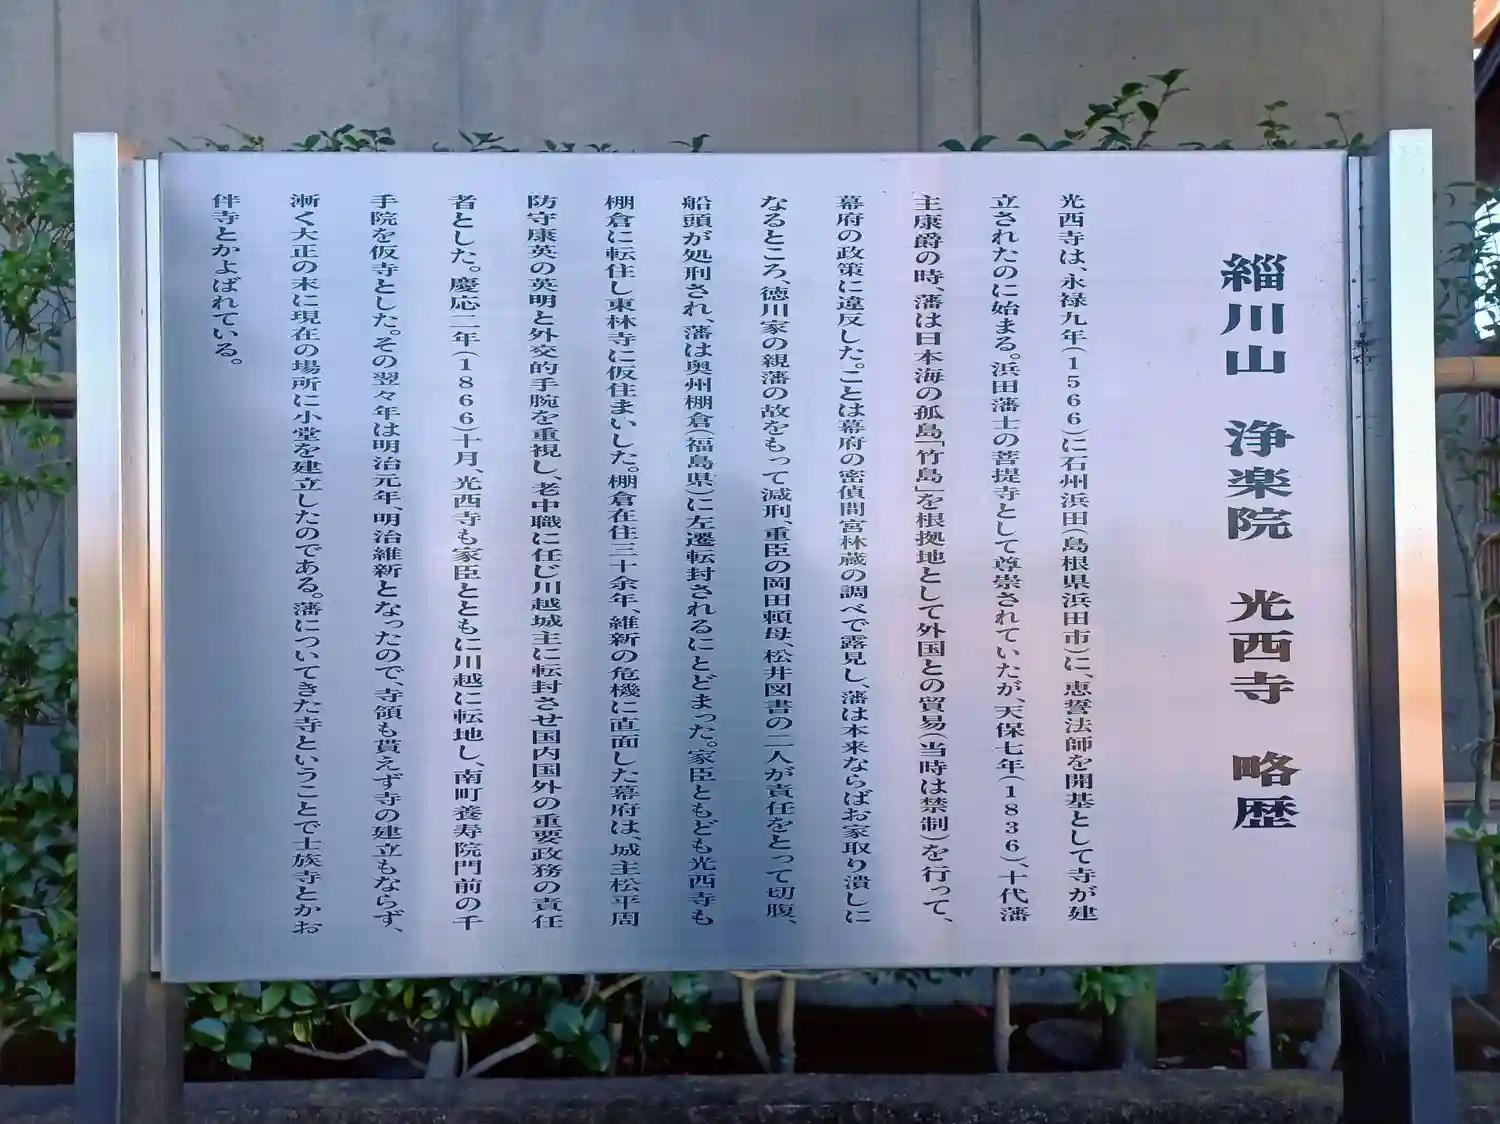 緇川山　浄楽院　光西寺　略歴
光西寺は、永禄九年(1566)に石州浜田(島根県浜田市)に、恵誓法師を開基として寺が建
立されたのに始まる。浜田藩士の菩提寺として尊崇されていたが、天保七年(1836)、十代藩
主康爵の時、藩は日本海の孤島「竹島」を根拠地として外国との貿易(当時は禁制)を行って、
幕府の政策に違反した。ことは幕府の密偵間宮林蔵の調べで露見し、藩は本来ならばお家取り潰しに
なるところ、徳川家の親藩の故をもって減刑、重臣の岡田頼母、松井図書の二人が責任をとって切腹、
船頭が処刑され、藩は奥州棚倉(福島県)に左遷転封されるにとどまった。家臣ともども光西寺も
棚倉に転住し東林寺に仮住まいした。棚倉在住三十余年、維新の危機に直面した幕府は、城主松平周
防守康英の英明と外交的手腕を重視し、老中職に任じ川越城主に転封させ国内国外の重要政務の責任
者とした。慶応二年(1866)十月、光西寺も家臣とともに川越に転地し、南町養寿院門前の千
手院を仮寺とした。その翌々年は明治元年、明治維新となったので、寺領も貰えず寺の建立もならず、
漸く大正の末に現在の場所に小堂を建立したのである。藩についてきた寺ということで士族寺とかお
伴寺とかよばれている。